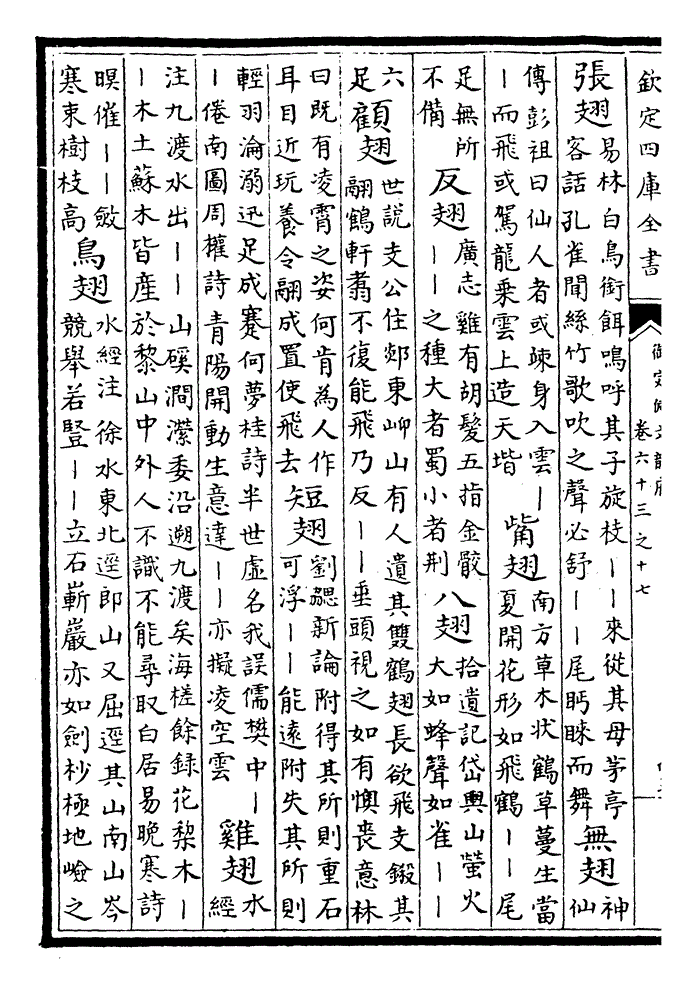 欽定四庫全書
御定佩文韻府 卷六十三之十七
張翅 易林白鳥銜餌鳴呼其子旋枝｜｜來從其母茅亭客話孔雀聞絲竹歌吹之聲必舒｜｜尾眄睞而舞 無翅 神仙
傳彭祖曰仙人者或竦身入雲｜｜而飛或駕龍乗雲上造天堦 觜翅 南方草木状鶴草蔓生當夏開花形如飛鶴｜｜尾
足無所不備 反翅 廣志雞有胡髮五指金骹｜｜之種大者蜀小者荆 八翅 拾遺記岱輿山螢火大如蜂聲如雀｜｜
六足 顧翅 世說支公住郯東岇山有人遺其雙鶴翅長欲飛支鎩其翮鶴軒翥不復能飛乃反｜｜垂頭視之如有懊喪意林
曰既有凌霄之姿何肯為人作耳目近玩養令翮成置使飛去 短翅 劉勰新論附得其所則重石可浮｜｜能遠附失其所則
輕羽淪溺迅足成蹇何夢桂詩半世虛名我誤儒樊中｜｜倦南圖周權詩青陽開動生意達｜｜亦擬凌空雲 雞翅 水經
注九渡水出｜｜山磎澗瀠委沿遡九渡矣海槎餘錄花梨木｜｜木土蘇木皆産於黎山中外人不識不能尋取白居易晚寒詩
暝催｜｜斂寒束樹枝高 鳥翅 水經注徐水東北逕郎山又屈逕其山南山岑競舉若豎｜｜立石嶄巖亦如劍杪極地嶮之